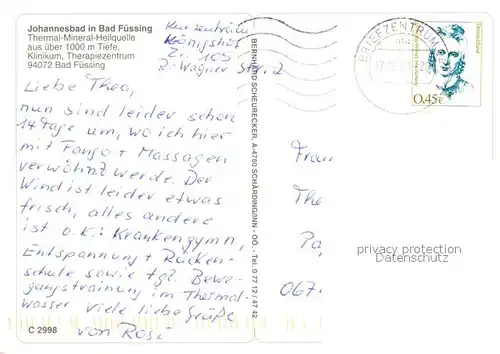 Johannesbad in Bad Füssing
Thermal-Mineral-Heilquelle
aus über 1000 m Tiefe,
Klinikum, Therapiezentrum
94072 Bad Füssing
Kurzentrum
Königshof
Z. 105
R. Wagner Str. 2
Liebe Thea,
nun sind leider schon
14 Tage um, wo ich hier
mit Fango + Massagen
verwöhnt werde. Der
Wind ist leider etwas
frisch, alles andere
ist o.k.: Krankengymn,
Entspannung + Rücken-
schule sowie tgl. Bewe-
gungstraining im Thermal-
wasser viele liebe Grüße
von Rosi
C 2998
BERNHARD SCHEURECKER, A-4780 SCHÄRDING/INN - OÖ. - Tel. 0 77 12 / 47 42
BRIEFZENTRUM
Deutschland
0,45€
Frau
The
Pa
067
privacy protection
Datenschutz